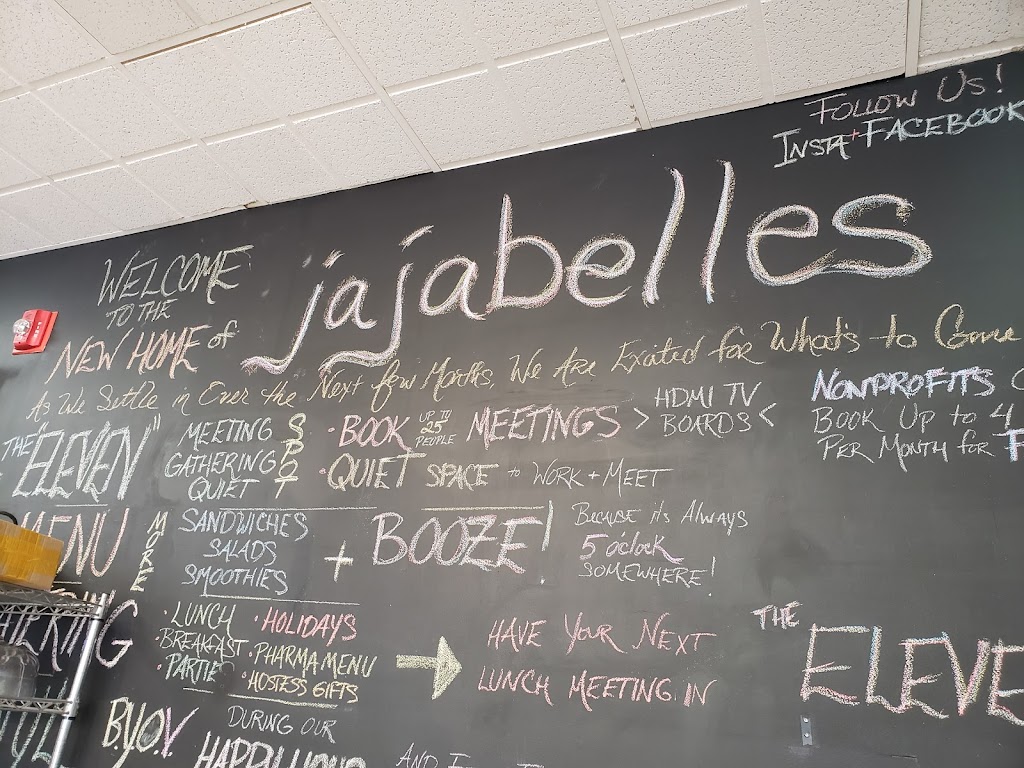 FOLLOW US!
INSTA + FACEBOOK
WELCOME
TO THE
NEW HOME of
jajabelles
AS We Settle in Over the Next few Months, We Are Excited for What's to Come
THE "ELEVEN"
MEETING
GATHERING
QUIET
SPOT
• BOOK UP TO 25 PEOPLE MEETINGS > HDMI TV BOARDS <
• QUIET SPACE to WORK + MEET
NONPROFITS C
BOOK UP to 4
PER MONTH for F
MENU
MORE
SANDWICHES
SALADS
SMOOTHIES
+ BOOZE!
BECAUSE it's ALWAYS
5 o'clock
SOMEWHERE!
• LUNCH
• BREAKFAST
• PARTIE
• HOLIDAYS
• PHARMA MENU
• HOSTESS GIFTS
HAVE YOUR NEXT
LUNCH MEETING IN
THE
ELEVE
B.Y.O.V
DURING OUR
HAPPY HOUR
AND